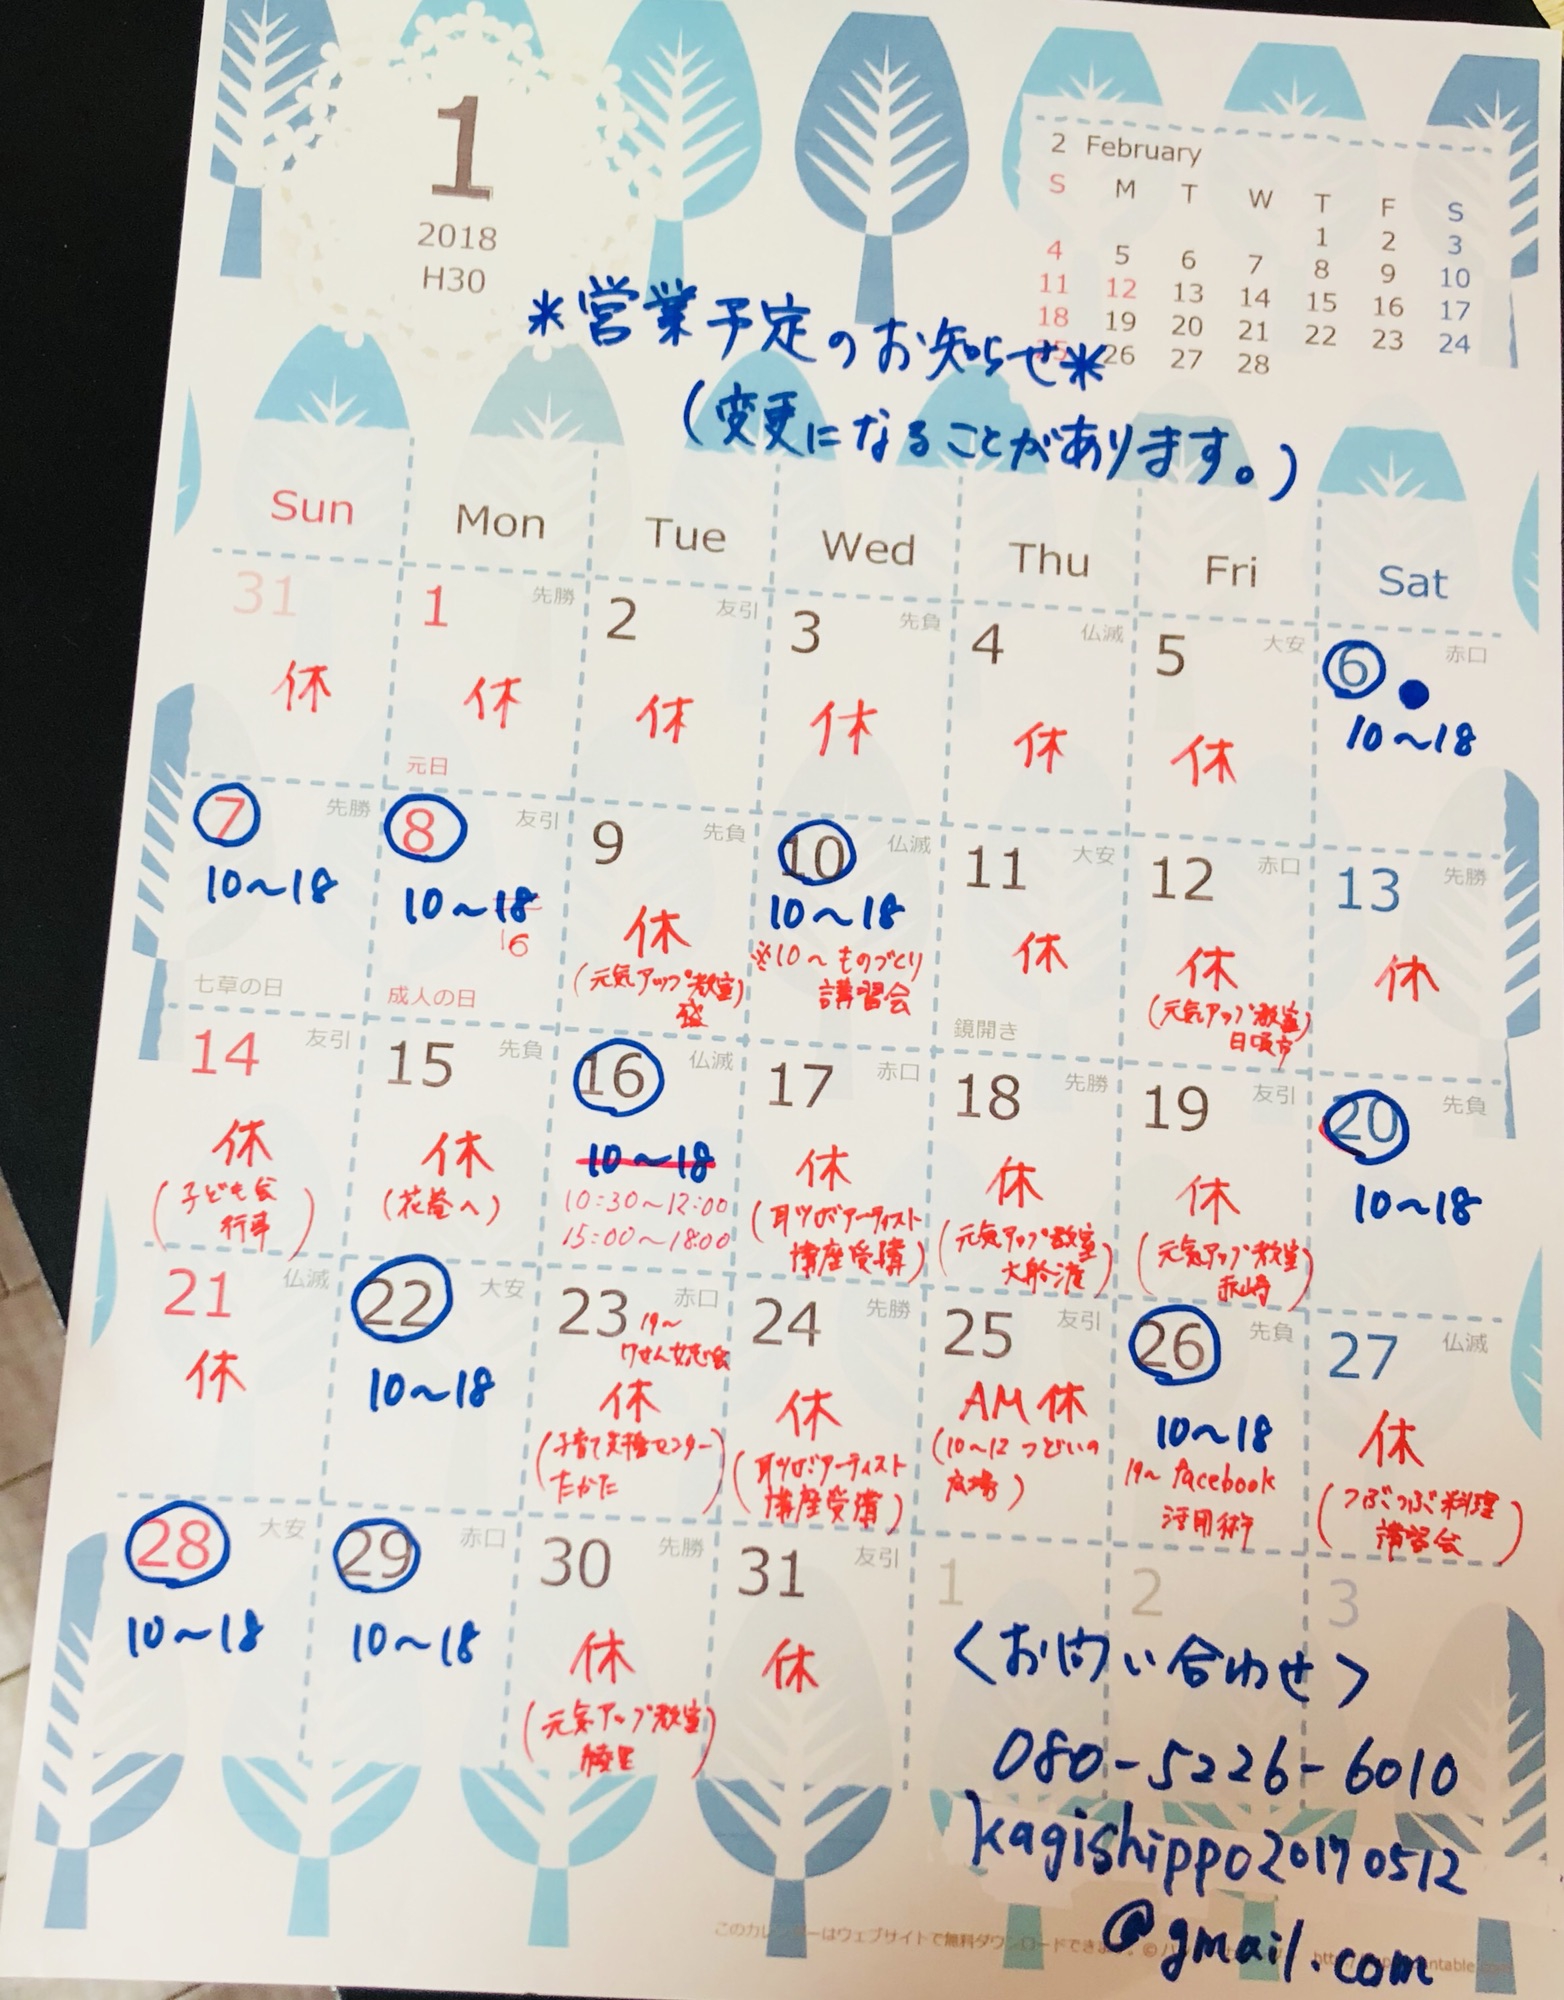 1
2018
H30
2 February
S M T W T F S
1 2 3
4 5 6 7 8 9 10
11 12 13 14 15 16 17
18 19 20 21 22 23 24
25 26 27 28
*営業予定のお知らせ*
(変更になることがあります。)
Sun Mon Tue Wed Thu Fri Sat
31
休
1 先勝
休
元日
2 友引
休
3 先負
休
4 仏滅
休
5 大安
休
6 赤口
10~18
7 先勝
10~18
七草の日
8 友引
10~18
16
成人の日
9 先負
休
(元気アップ教室)
盛
10 仏滅
10~18
※10~ものづくり
講習会
11 大安
休
鏡開き
12 赤口
休
(元気アップ教室)
日頃市
13 先勝
休
14 友引
休
(子ども会
行事)
15 先負
休
(花巻へ)
16 仏滅
10~18
10:30~12:00
15:00~18:00
17 赤口
休
(耳ツボアーティスト
講座受講)
18 先勝
休
(元気アップ教室
大船渡)
19 友引
休
(元気アップ教室
赤崎)
20 先負
10~18
21 仏滅
休
22 大安
10~18
23 赤口
19~
けせん女志会
休
(子育て支援センター)
たかた
24 先勝
休
(耳ツボアーティスト
講座受講)
25 友引
AM 休
(10~12 つどいの
広場)
26 先負
10~18
19~ facebook
活用術
27 仏滅
休
(つぶつぶ料理
講習会)
28 大安
10~18
29 赤口
10~18
30 先勝
休
(元気アップ教室)
綾里
31 友引
休
1
2
3
<お問い合わせ>
080-5226-6010
kagishippo20170512
@gmail.com
このカレンダーはウェブサイトで無料ダウンロードできます。©